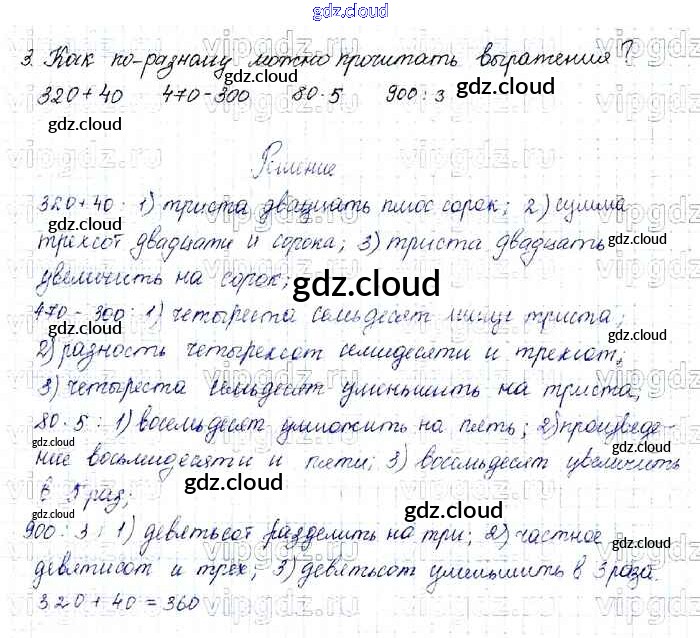 gdz.cloud
3. Как по-разному можно прочитать выражения?
320+40 470-300 80·5 900:3
gdz.cloud
gdz.cloud
Решение
320+40: 1) триста двадцать плюс сорок; 2) сумма
трехсот двадцати и сорока; 3) триста двадцать
gdz.cloud
увеличить на сорок;
gdz.cloud
470-300: 1) четыреста семьдесят минус триста;
2) разность четырехсот семидесяти и трехсот;
gdz.cloud
3) четыреста семьдесят уменьшить на триста;
80·5: 1) восемьдесят умножить на пять; 2) произведе-
gdz.cloud
ние восьмидесяти и пяти; 3) восемьдесят увеличить
в 5 раз;
gdz.cloud
gdz.cloud
900:3: 1) девятьсот разделить на три; 2) частное
gdz.cloud
девятисот и трех; 3) девятьсот уменьшить в 3 раза.
320+40=360
gdz.cloud